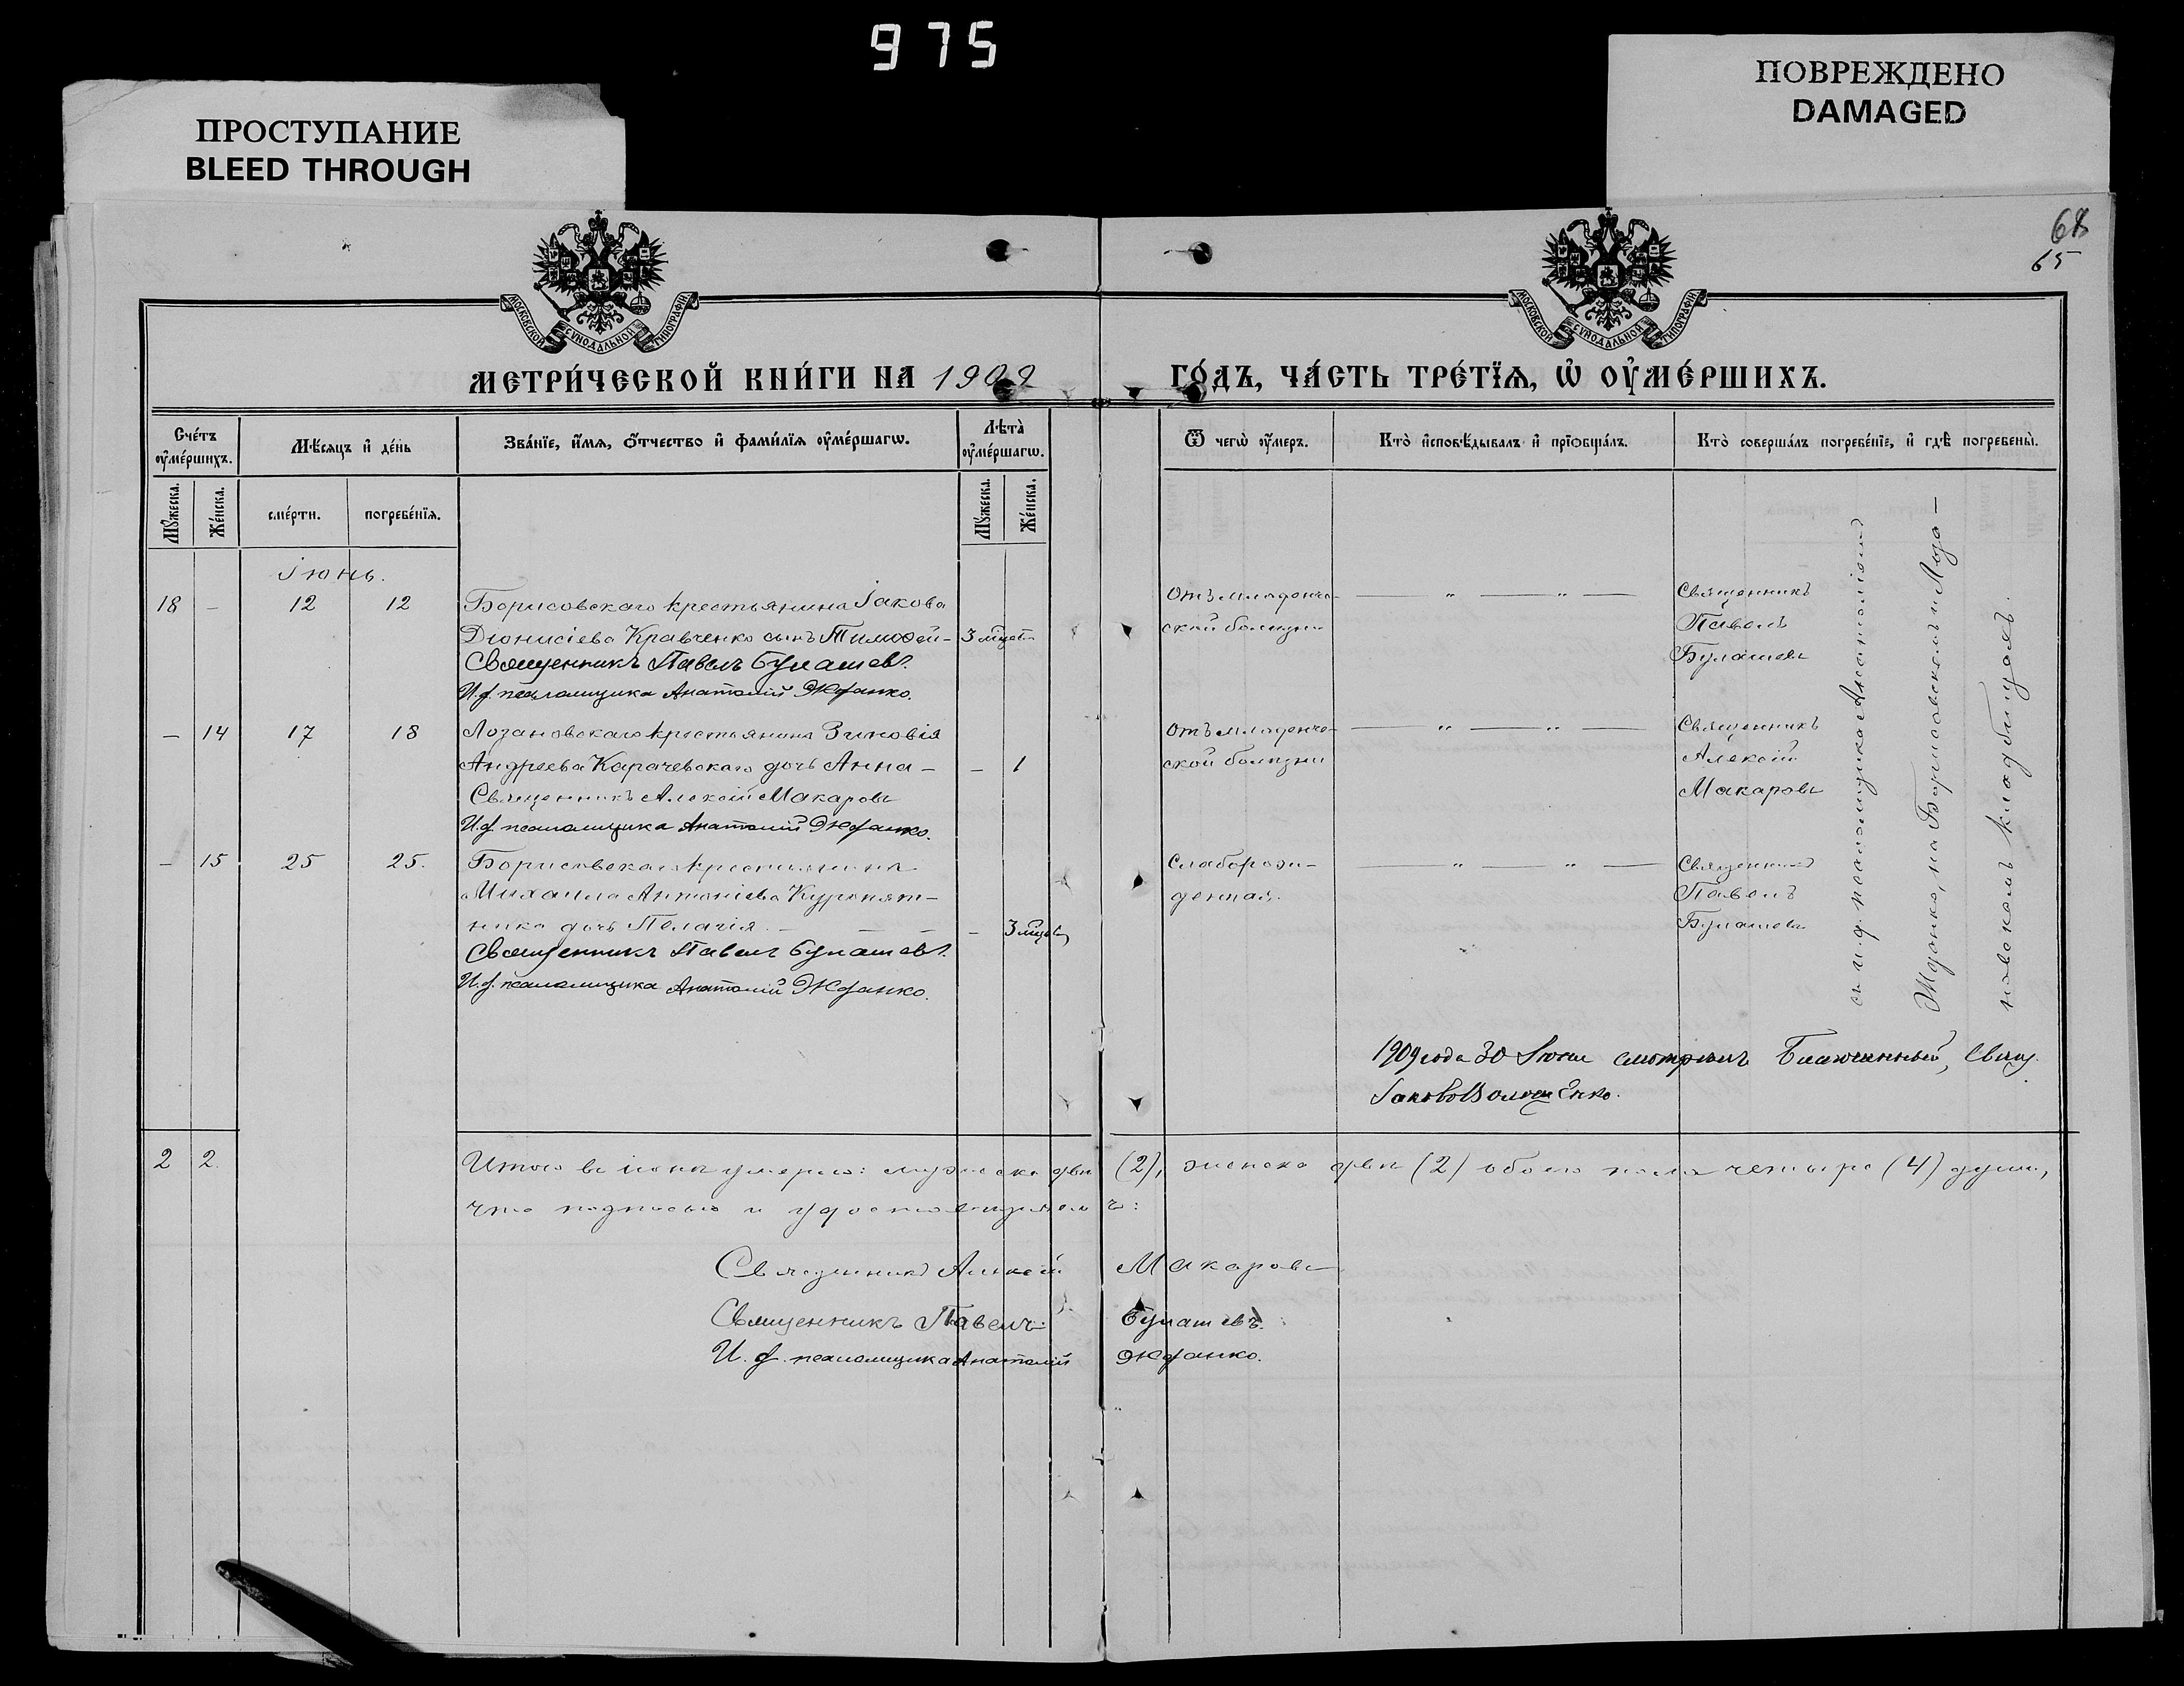 975
ПРОСТУПАНИЕ
BLEED THROUGH
ПОВРЕЖДЕНО
DAMAGED
68
65
МОСКОВСКОЙ СѴНОДАЛЬНОЙ ТИПОГРАФІИ
МОСКОВСКОЙ СѴНОДАЛЬНОЙ ТИПОГРАФІИ
МЕТРИ́ЧЕСКОЙ КНИ́ГИ НА 1909 ГО́ДЪ, ЧА́СТЬ ТРЕ́ТЇѦ, Ѡ҆ ОУ҆МЕ́РШИХЪ.
Сче́тъ оу҆ме́ршихъ.
Мѣ́сѧцъ и҆ де́нь
Зва́нїе, и҆́мѧ, ѻ҆́тчество и҆ фами́лїѧ оу҆ме́ршагѡ.
Лѣ̑та оу҆ме́ршагѡ.
Ѿ чегѡ̀ оу҆́меръ.
Кто̀ и҆сповѣ́дывалъ и҆ прїѡбща́лъ.
Кто̀ соверша́лъ погребе́нїе, и҆ гдѣ̀ погребены̀.
Мꙋ́жеска.
Же́нска.
сме́рти.
погребе́нїѧ.
Мꙋ́жеска.
Же́нска.
Іюнь.
18 – 12 12 Борисовскаго крестьянина Іакова
Діонисіева Кравченко сынъ Тимоѳей – 3 мѣсяц.
Священникъ Павелъ Булашевъ.
И.д. псаломщика Анатолій Жданко.
Отъ младенче-
ской болѣзни
— „ — „ —
Священникъ
Павелъ
Булашевъ
– 14 17 18 Лозановскаго крестьянина Зиновія
Андреева Карачевскаго дочь Анна – – 1
Священникъ Алексій Макаровъ
И.д. псаломщика Анатолій Жданко.
Отъ младенче-
ской болѣзни
— „ — „ —
Священникъ
Алексій
Макаровъ
– 15 25 25. Борисовскаго крестьянина
Михаила Антоніева Куропят-
ника дочь Пелагія – – – – 3 мѣсяц.
Священникъ Павелъ Булашевъ.
И.д. псаломщика Анатолій Жданко.
Слаборож-
денная.
— „ — „ —
Священникъ
Павелъ
Булашевъ
съ и.д. псаломщика Анатоліемъ
Жданко, на Борисовскомъ и Лоза-
новскомъ кладбищахъ.
1909 года 30 Іюня смотрѣлъ Благочинный, Свящ.
Іаковъ
2 2. Итого въ іюнѣ умерло: мужеска два (2), женска двѣ (2) обоего пола четыре (4) души,
что подписью и удостовѣряемъ:
Священникъ Алексій Макаровъ
Священникъ Павелъ Булашевъ.
И. д. псаломщика Анатолій Жданко.